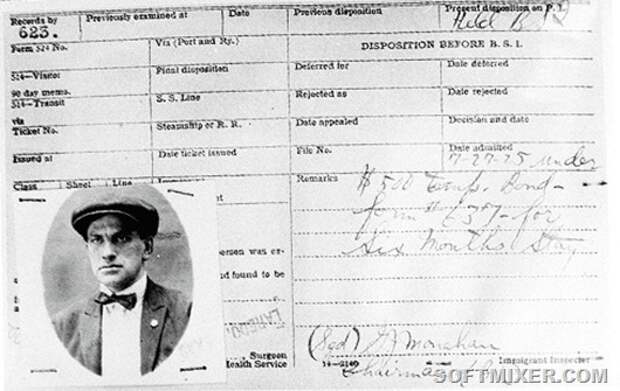 Records by Previously examined at Date Previous disposition Present disposition on P. I.
623. Held B S I
Form 524 No. Via (Port and Ry.) DISPOSITION BEFORE B. S. I.
524—Visitor Final disposition Deferred for Date deferred
90 day memo.
524—Transit S. S. Line Rejected as Date rejected
via
Ticket No. Steamship or R. R. Date appealed Decision and date
Issued at Date ticket issued File No. Date admitted
7-27-25 under
Class Sheet Line Remarks $500 Temp. Bond—
form # 637—for
six months stay
erson was ex-
nd found to be
LAREDO
(Sgd) Monahan
Surgeon 14—2140 Immigrant Inspector
Health Service Chairman
SOFTMIXER.COM